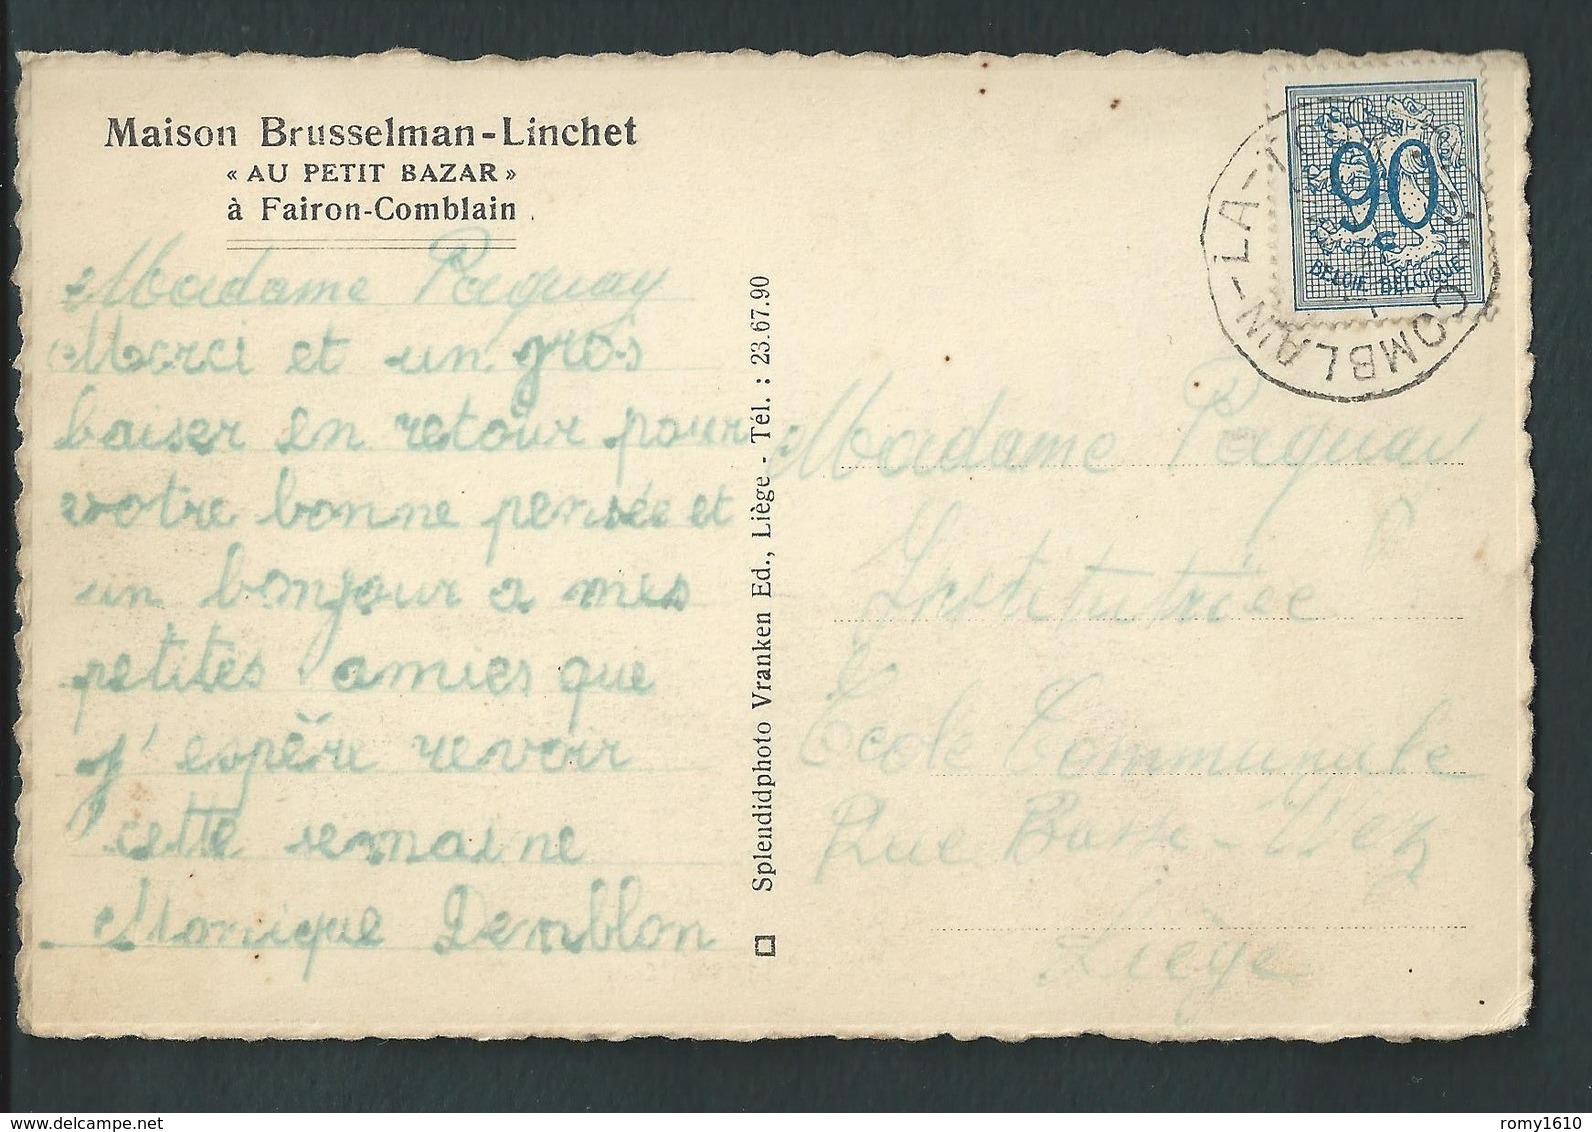 Maison Brusselman-Linchet
« AU PETIT BAZAR »
à Fairon-Comblain
Madame Paquay
Merci et un gros
baiser en retour pour
votre bonne pensée et
un bonjour a mes
petites amies que
j'espère revoir
cette semaine
Monique Demblon
Splendidphoto Vranken Ed., Liège - Tél. : 23.67.90
90
c
BELGIE BELGIQUE
COMBLAIN-LA-
Madame Paquay
Institutrice
Ecole Communale
Rue Basse-Wez
Liège
www.delcampe.net
romy1610